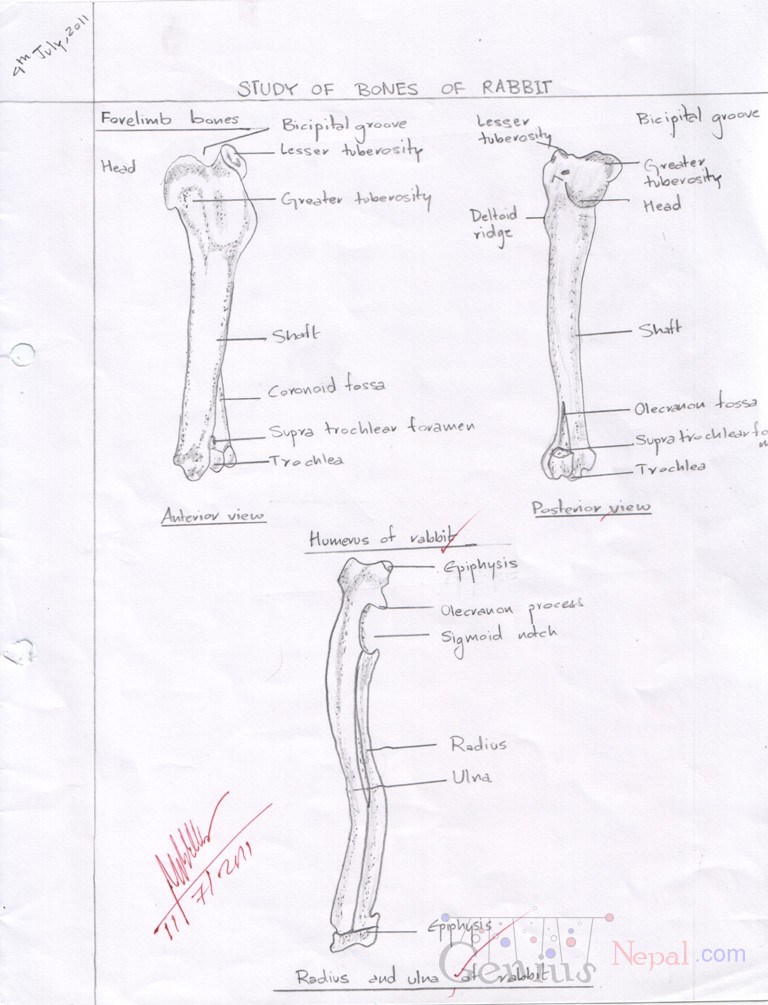 9th July, 2011
STUDY OF BONES OF RABBIT
Forelimb bones
Bicipital groove
Lesser tuberosity
Head
Greater tuberosity
Shaft
Coronoid fossa
Supra trochlear foramen
Trochlea
Anterior view
Lesser
tuberosity
Bicipital groove
Greater
tuberosity
Head
Deltoid
ridge
Shaft
Olecranon fossa
Supra trochlear fo
Trochlea
Posterior view
Humerus of rabbit
Epiphysis
Olecranon process
Sigmoid notch
Radius
Ulna
Epiphysis
Radius and ulna of rabbit
11/7/2011
Genius Nepal.com